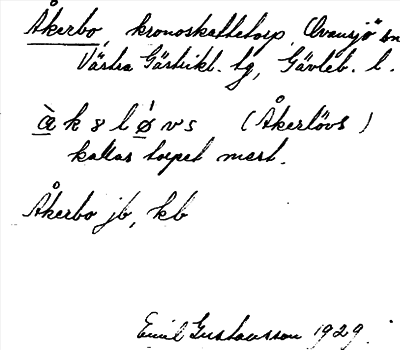 Åkerbo, kronoskattetorp, Ovansjö sn
Västra Gästrikl. tg, Gävleb. l.
àk8lø̀vs (Åkerlövs)
kallas torpet mest.
Åkerbo jb, kb
Emil Gustavsson 1929.